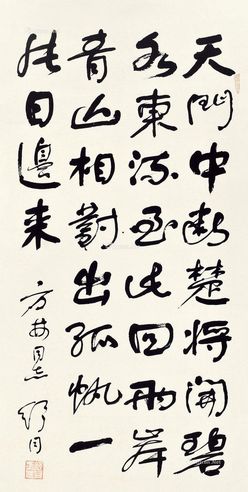 天門中断楚将開碧
水東流至此回兩岸
青山相對出孤帆一
片日邊来
方林同志 舒同